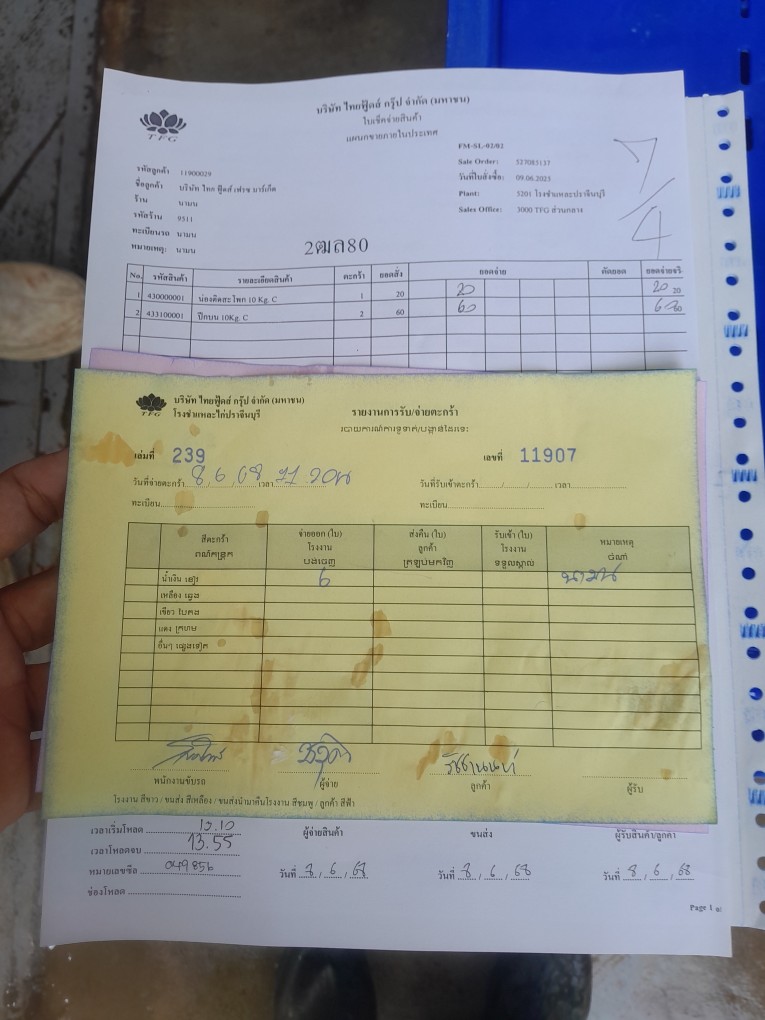 บริษัท ไทยฟู้ดส์ กรุ๊ป จำกัด (มหาชน)
ใบเช็คจ่ายสินค้า
แผนกขายภายในประเทศ
TFG
FM-SL-02/02
Sale Order: 527083137
วันที่ใบสั่งซื้อ: 09.06.2025
Plant: 5201 โรงชำแหละปราจีนบุรี
Sales Office: 3000 TFG ส่วนกลาง
7/4
รหัสลูกค้า 11900029
ชื่อลูกค้า บริษัท ไทย ฟู้ดส์ เฟรช มาร์เก็ต
ร้าน นามน
รหัสร้าน 9511
ทะเบียนรถ นามน
หมายเหตุ: นามน
2ฒล80
No. รหัสสินค้า รายละเอียดสินค้า ตะกร้า ยอดสั่ง ยอดจ่าย ตัดยอด ยอดจ่ายจริง
1 430000001 น่องติดสะโพก 10 Kg. C 1 20 20 20 20
2 433100001 ปีกบน 10Kg. C 2 60 60 60 60
TFG
บริษัท ไทยฟู้ดส์ กรุ๊ป จำกัด (มหาชน)
โรงชำแหละไก่ปราจีนบุรี
รายงานการรับ/จ่ายตะกร้า
เล่มที่ 239 เลขที่ 11907
วันที่จ่ายตะกร้า 8, 6, 68 เวลา วันที่รับเข้าตะกร้า...../...../..... เวลา
ทะเบียน ทะเบียน
สีตะกร้า จ่ายออก (ใบ) ส่งคืน (ใบ) รับเข้า (ใบ) หมายเหตุ
โรงงาน ลูกค้า โรงงาน
น้ำเงิน ខៀវ 6 นามน
เหลือง លឿង
เขียว បៃតង
แดง ក្រហម
อื่นๆ ផ្សេងទៀត
พนักงานขับรถ ผู้จ่าย ลูกค้า ผู้รับ
โรงงาน สีขาว / ขนส่ง สีเหลือง / ขนส่งนำมาคืนโรงงาน สีชมพู / ลูกค้า สีฟ้า
เวลาเริ่มโหลด 13.10 ผู้จ่ายสินค้า ขนส่ง ผู้รับสินค้า/ลูกค้า
เวลาโหลดจบ 13.55
หมายเลขซีล 049856 วันที่ 8, 6, 68 วันที่ 8, 6, 68 วันที่ 8, 6, 68
ช่องโหลด
Page 1